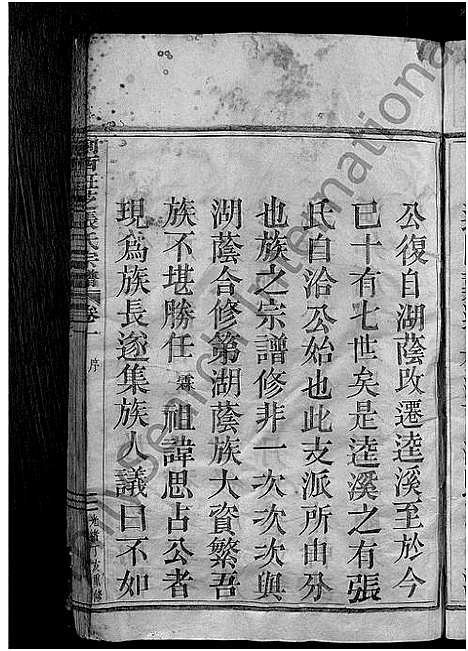 公復自湖蔭改遷逵溪至於今
已十有七世矣是逵溪之有張
氏自洽公始也此支派所由分
也族之宗譜修非一次次次與
湖蔭合修第湖蔭族大資繁吾
族不堪勝任霖祖諱思占公者
現爲族長遂集族人議曰不如
張氏宗譜
卷一
序